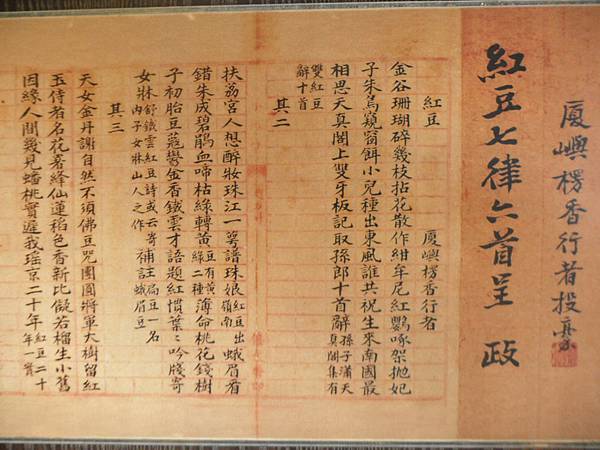 廈嶼楞香行者投
紅豆七律六首呈 政
紅豆 廈嶼楞香行者
金谷珊瑚碎幾枝拈花散作紺牟尼紅鸚啄架拋妃
子朱鳥窺窗餌小兒種出東風誰共祝生來南國最
相思天真閣上雙牙板記取孫郎十首辭孫子瀟天真閣集有
雙紅豆辭十首 其二
扶荔宮人想醉妝珠江一譜珠娘紅豆出嶺南蛾眉看
錯朱成碧鵑血啼枯綠轉黃豆有黃綠二種薄命桃花錢樹
子初胎豆蔻鬱金香鐵雲才語題紅慣葉〻吟牋寄
女牀舒鐵雲紅豆詩或云寄內子女牀山人之作補註豆一名蛾眉豆
其三
天女金丹謝自然不須佛豆咒團圓將軍大樹留紅
玉侍者名花署絳仙蓮稻色香新比儗若榴生小舊
因緣人間幾見蟠桃實遲我瑤京二十年紅豆二十年一實